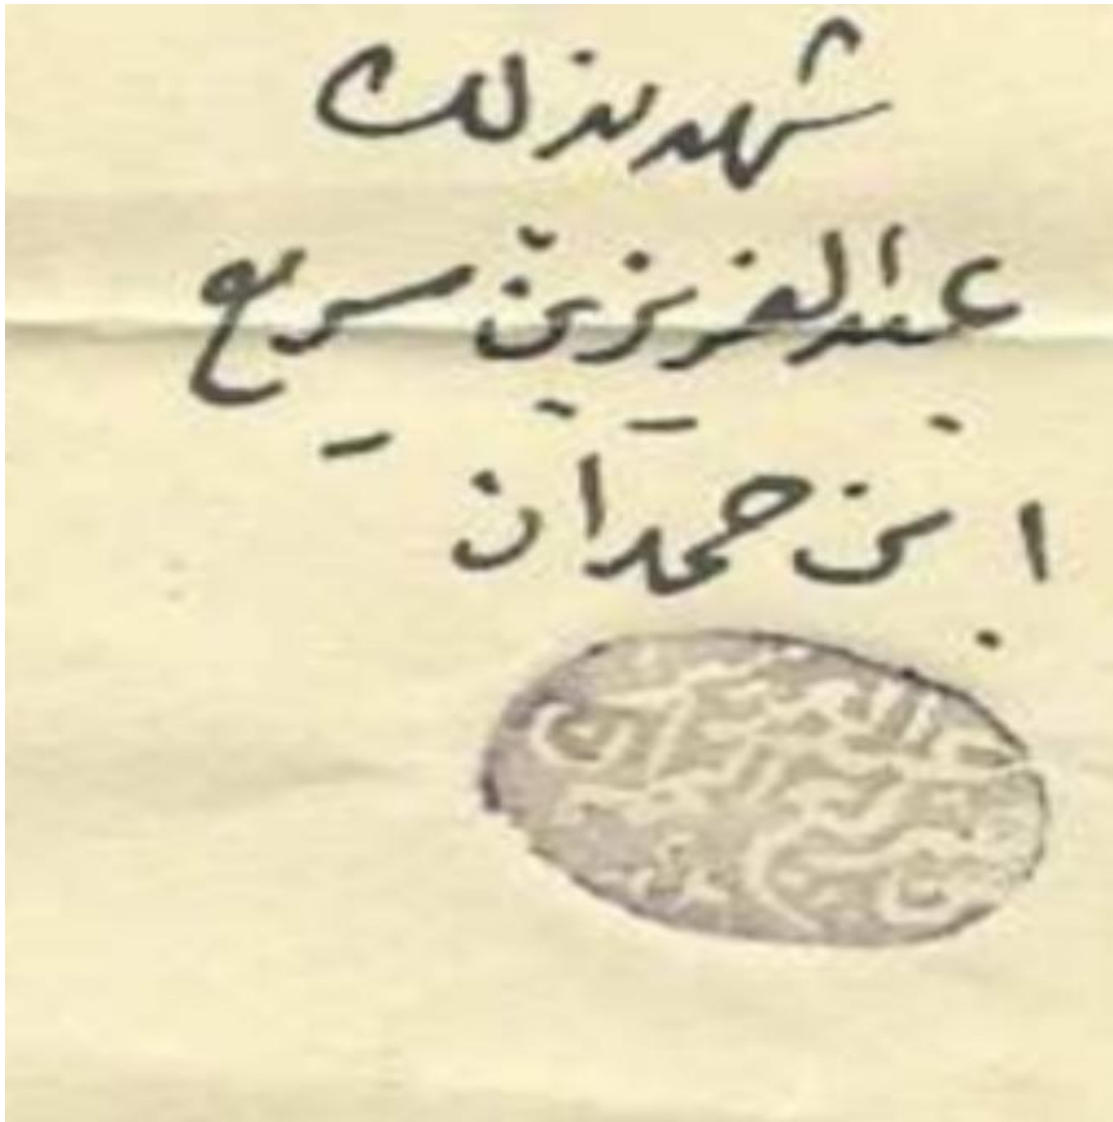 شهد بذلك
عبد العزيز بن سريع
ابن حمدان